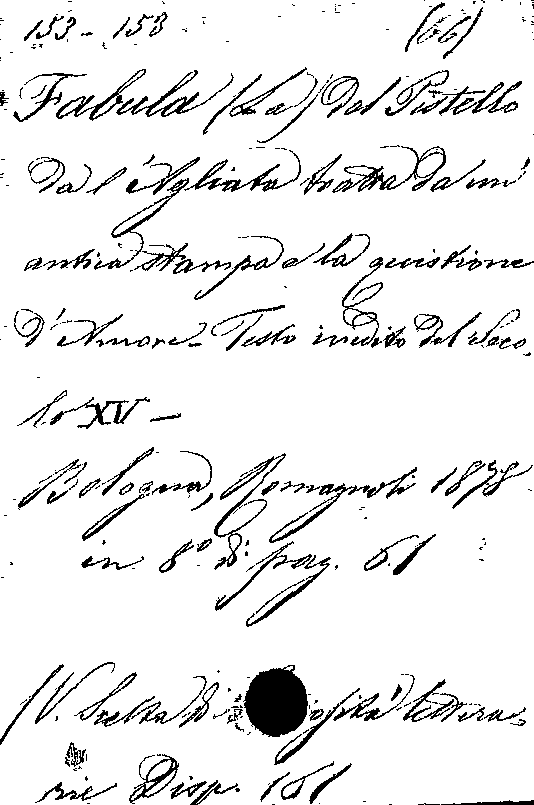 153 - 153 (66)
Fabula (La) del Pistello
da l'Agliata tratta da un'
antica stampa e la quistione
d'Amore - Testo inedito del Seco-
lo XV -
Bologna, Romagnoli 1878
in 8º di pag. 61
(V. Scelta di lettera-
rie Disp. 161